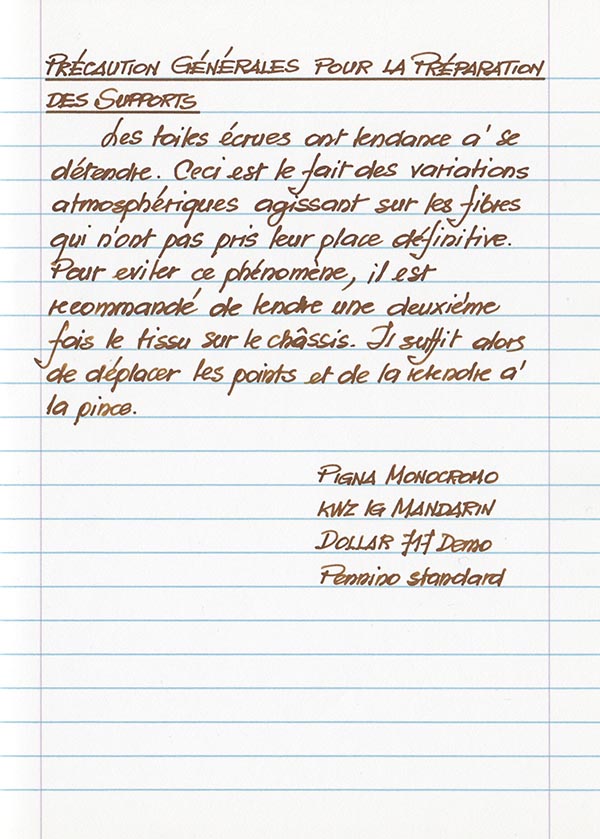 PRÉCAUTION GÉNÉRALES POUR LA PRÉPARATION
DES SUPPORTS
Les toiles écrues ont tendance a' se
détendre. Ceci est le fait des variations
atmosphériques agissant sur les fibres
qui n'ont pas pris leur place définitive.
Pour eviter ce phénomène, il est
recommandé de tendre une deuxiéme
fois le tissu sur le châssis. Il suffit alors
de déplacer les points et de la retendre a'
la pince.
PIGNA MONOCROMO
KWZ IG MANDARIN
DOLLAR 717 Demo
Pennino standard